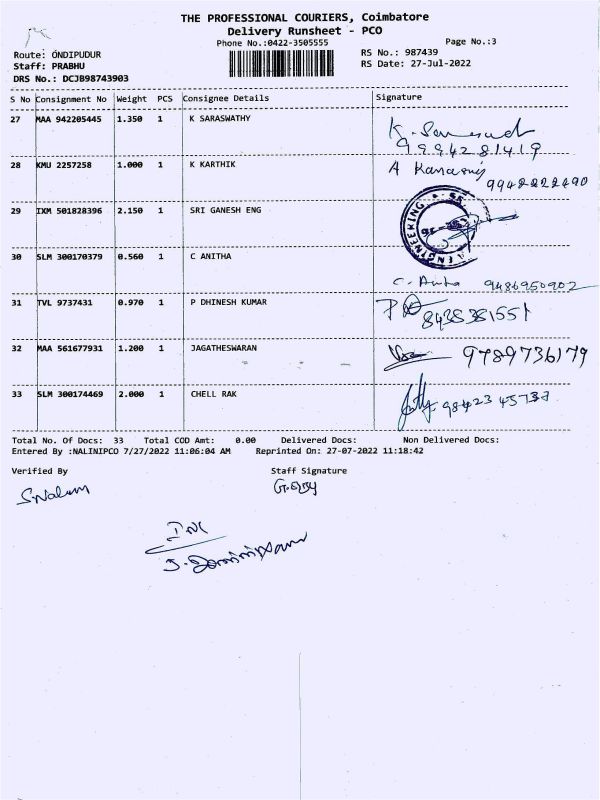 THE PROFESSIONAL COURIERS, Coimbatore
Delivery Runsheet - PCO
Phone No.:0422-3505555 Page No.:3
Route: ONDIPUDUR RS No.: 987439
Staff: PRABHU RS Date: 27-Jul-2022
DRS No.: DCJB98743903
S No Consignment No Weight PCS Consignee Details Signature
27 MAA 942205445 1.350 1 K SARASWATHY
9994281419
28 KMU 2257258 1.000 1 K KARTHIK A
9942222490
29 IXM 501828396 2.150 1 SRI GANESH ENG
ENGINEERING
30 SLM 300170379 0.560 1 C ANITHA
9486950902
31 TVL 9737431 0.970 1 P DHINESH KUMAR
8438381551
32 MAA 561677931 1.200 1 JAGATHESWARAN 9789736179
33 SLM 300174469 2.000 1 CHELL RAK
Total No. Of Docs: 33 Total COD Amt: 0.00 Delivered Docs: Non Delivered Docs:
Entered By :NALINIPCO 7/27/2022 11:06:04 AM Reprinted On: 27-07-2022 11:18:42
Verified By Staff Signature